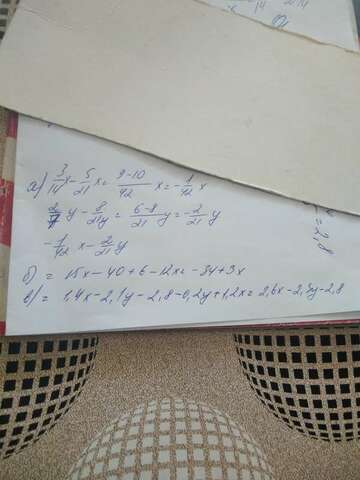 а) 3/14 x - 5/21 x = 9-10/42 x = -1/42 x
2/7 y - 8/21 y = 6-8/21 y = -2/21 y
-1/42 x - 2/21 y
б) = 15x - 40 + 6 - 12x = -34 + 3x
в) = 1,4x - 2,1y - 2,8 - 0,2y + 1,2x = 2,6x - 2,3y - 2,8
= 2,8